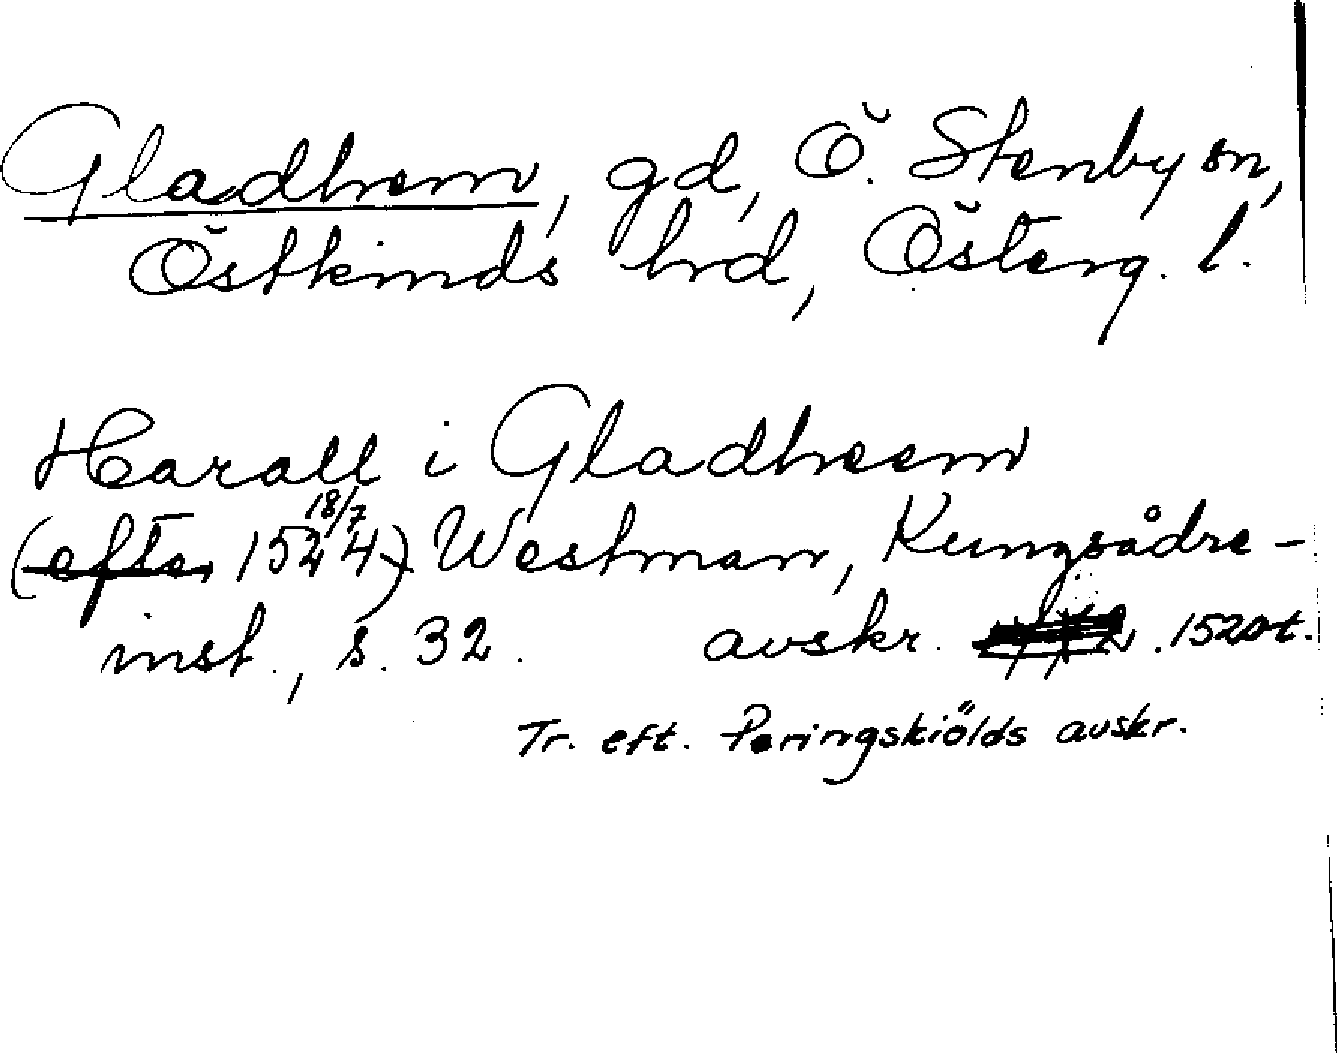 Gladhem, gd, Ö. Stenby sn,
Östkinds hrd, Österg. l.
Harall i Gladheem
18/7
(efter 1524) Westman, Kungsådre-
inst., s. 32. avskr. 1520t.
Tr. eft. Peringskiölds avskr.